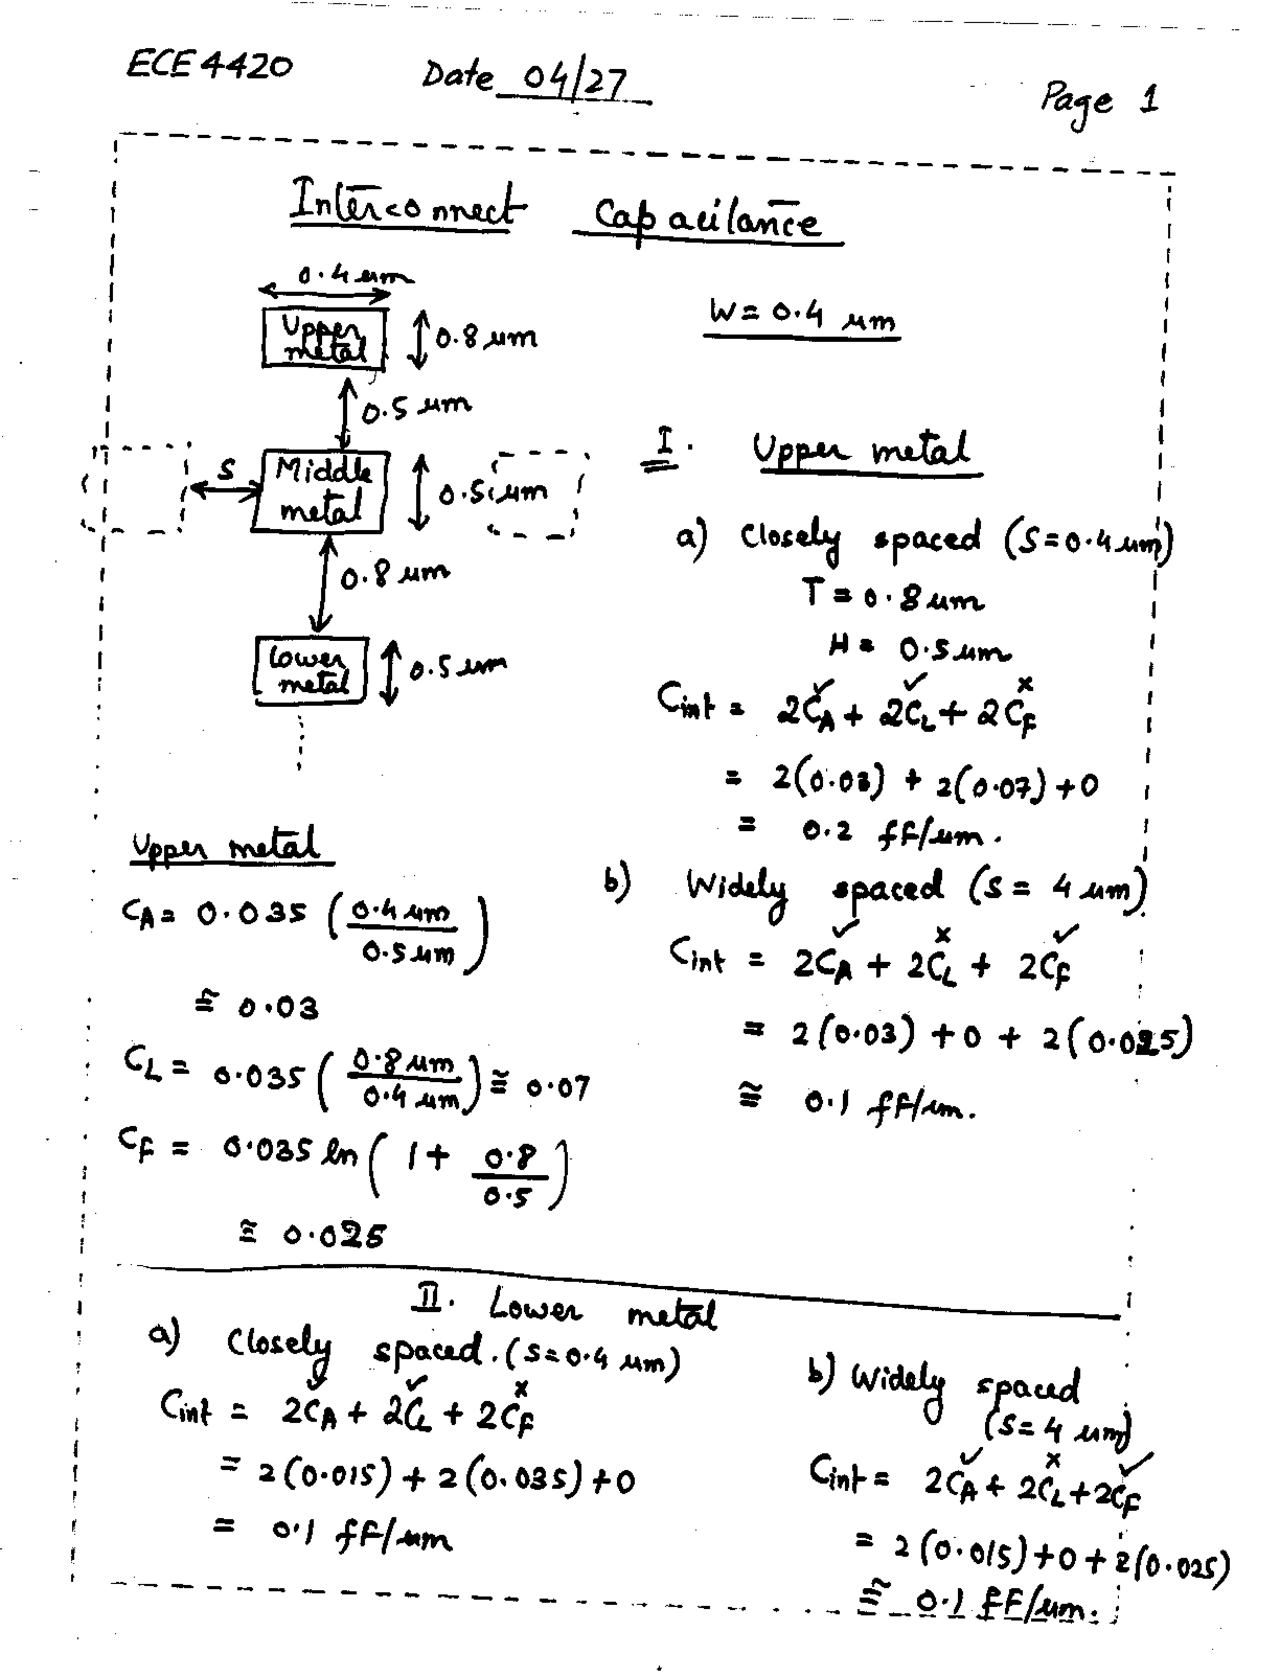 ECE 4420 Date 04/27 Page 1
Interconnect Capacitance
0.4 µm
W = 0.4 µm
Upper
metal
0.8 µm
0.5 µm
S
Middle
metal
0.5 µm
0.8 µm
Lower
metal
0.5 µm
I. Upper metal
a) Closely spaced (S=0.4 µm)
T = 0.8 µm
H = 0.5 µm
✓ ✓ x
Cint = 2CA + 2CL + 2CF
= 2(0.03) + 2(0.07) + 0
= 0.2 fF/µm.
b) Widely spaced (S = 4 µm)
✓ x ✓
Cint = 2CA + 2CL + 2CF
= 2(0.03) + 0 + 2(0.025)
≅ 0.1 fF/µm.
Upper metal
CA = 0.035 (0.4 µm / 0.5 µm)
≅ 0.03
CL = 0.035 (0.8 µm / 0.4 µm) ≅ 0.07
CF = 0.035 ln (1 + 0.8 / 0.5)
≅ 0.025
II. Lower metal
a) Closely spaced. (S=0.4 µm)
✓ ✓ x
Cint = 2CA + 2CL + 2CF
= 2(0.015) + 2(0.035) + 0
= 0.1 fF/µm
b) Widely spaced
(S=4 µm)
✓ x ✓
Cint = 2CA + 2CL + 2CF
= 2(0.015) + 0 + 2(0.025)
≅ 0.1 fF/µm.